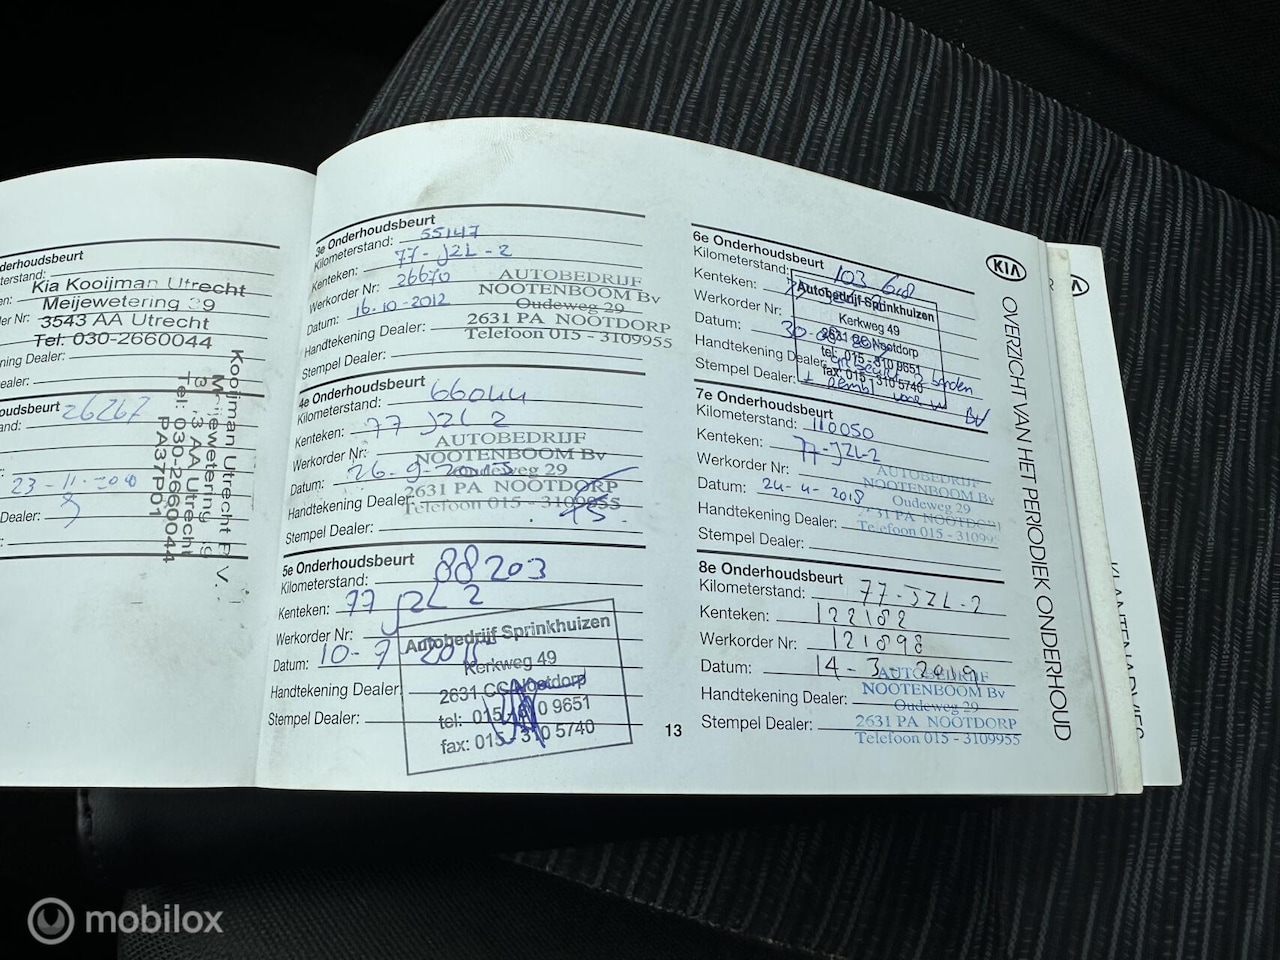 derhoudsbeurt
terstand:
Kia Kooijman Utrecht
Meijewetering 39
er Nr: 3543 AA Utrecht
Tel: 030-2660044
ning Dealer:
ealer:
oudsbeurt 26267
and:
23-11-2010
Dealer:
Kooijman Utrecht B.V.
Tel: 030-2660044
PA37P01
3e Onderhoudsbeurt
Kilometerstand: 55147
Kenteken: 77-JZL-2
Werkorder Nr: 26670
Datum: 16-10-2012
Handtekening Dealer:
Stempel Dealer:
AUTOBEDRIJF
NOOTENBOOM BV
Oudeweg 29
2631 PA NOOTDORP
Telefoon 015 - 3109955
4e Onderhoudsbeurt
Kilometerstand: 66044
Kenteken: 77 JZL 2
Werkorder Nr:
Datum: 26-9-
Handtekening Dealer:
Stempel Dealer:
AUTOBEDRIJF
NOOTENBOOM BV
Oudeweg 29
2631 PA NOOTDORP
Telefoon 015 - 3109955
5e Onderhoudsbeurt
Kilometerstand: 88203
Kenteken: 77 JZL 2
Werkorder Nr:
Datum: 10-7
Handtekening Dealer:
Stempel Dealer:
Autobedrijf Sprinkhuizen
Kerkweg 49
2631 CC Nootdorp
tel: 015-310 9651
fax: 015-310 5740
13
6e Onderhoudsbeurt
Kilometerstand: 103 618
Kenteken:
Werkorder Nr:
Datum:
Handtekening Dealer:
Stempel Dealer:
Autobedrijf Sprinkhuizen
Kerkweg 49
2631 CC Nootdorp
tel: 015-310 9651
fax: 015-310 5740
banden
voor
7e Onderhoudsbeurt
Kilometerstand: 110050
Kenteken: 77-JZL-2
Werkorder Nr:
Datum: 24-4-2018
Handtekening Dealer:
Stempel Dealer:
AUTOBEDRIJF
NOOTENBOOM BV
Oudeweg 29
2631 PA NOOTDORP
Telefoon 015 - 31099
8e Onderhoudsbeurt
Kilometerstand: 77-JZL-2
Kenteken: 122182
Werkorder Nr: 121898
Datum: 14-3-2019
Handtekening Dealer:
Stempel Dealer:
AUTOBEDRIJF
NOOTENBOOM BV
Oudeweg 29
2631 PA NOOTDORP
Telefoon 015 - 3109955
KIA
OVERZICHT VAN HET PERIODIEK ONDERHOUD
mobilox